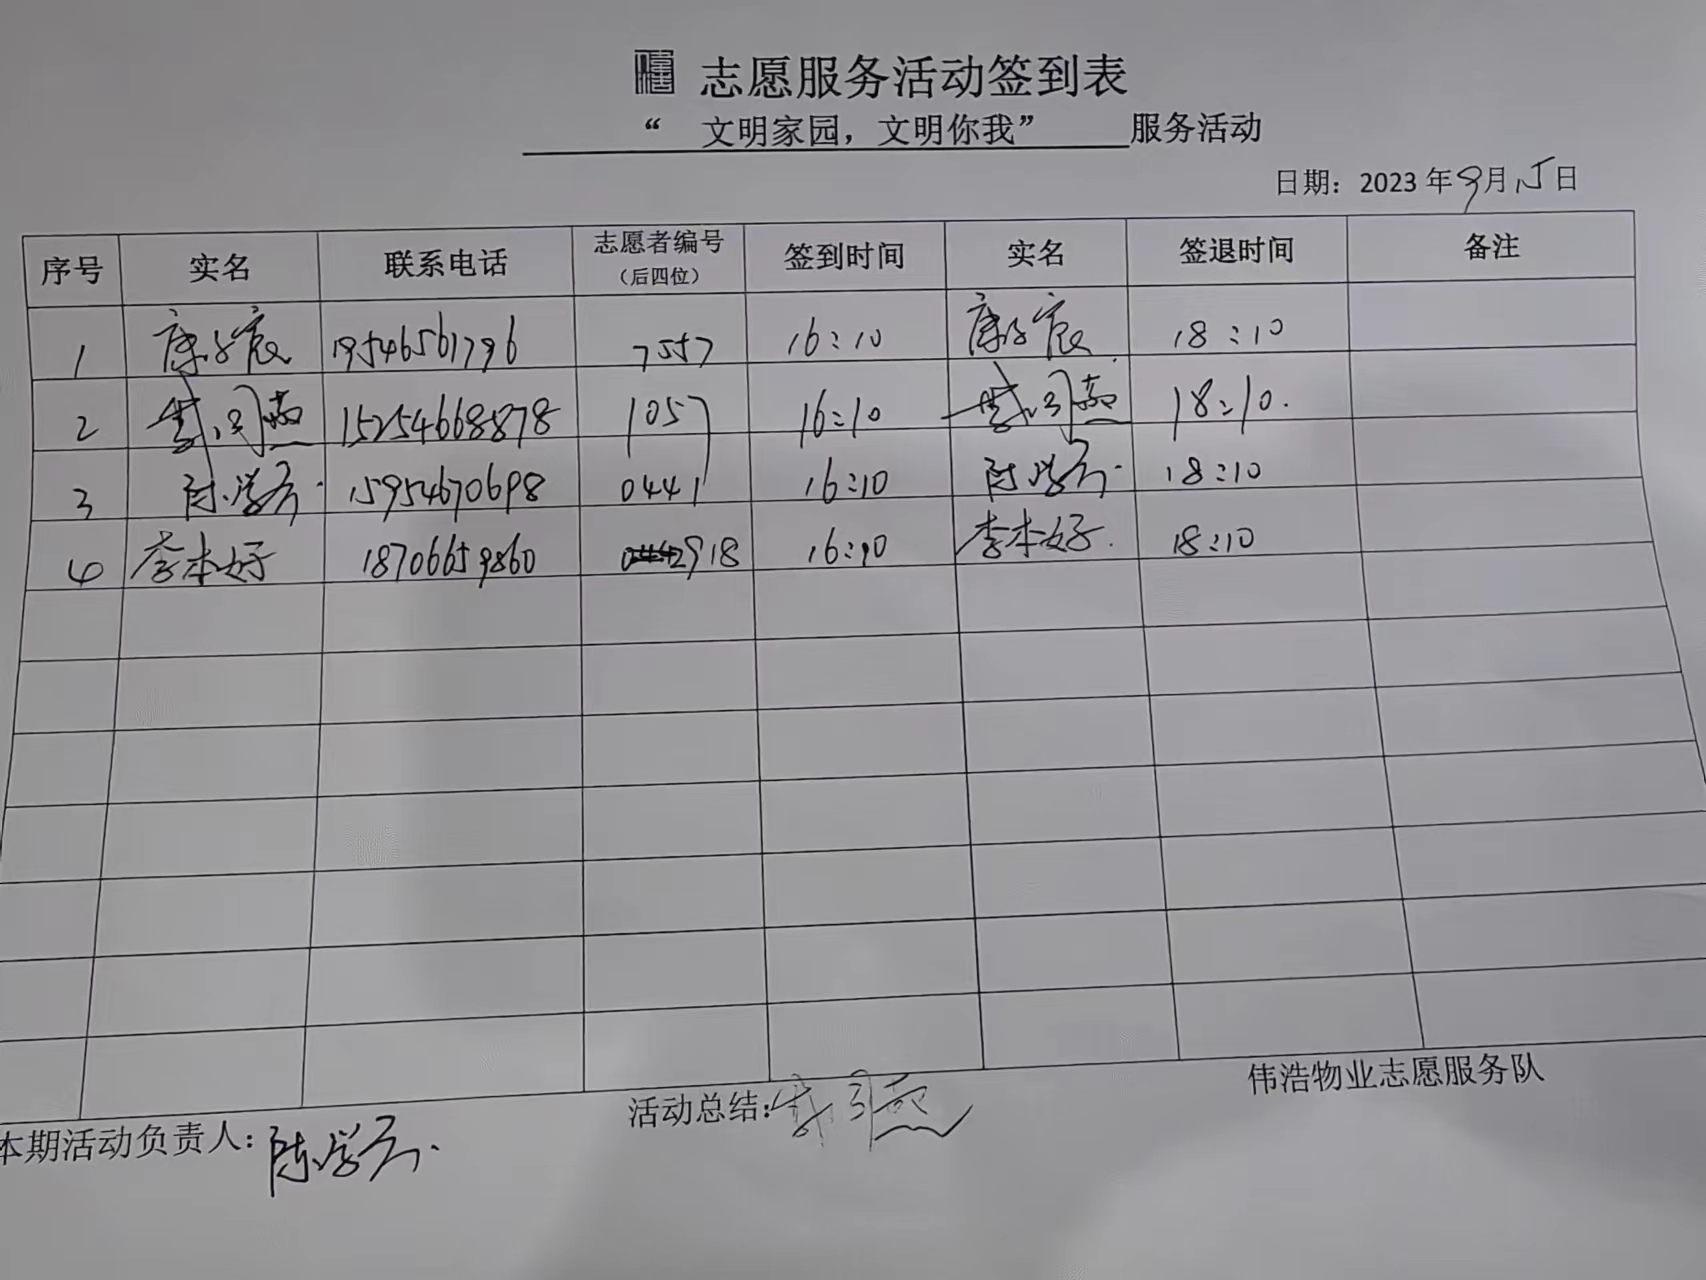 志愿服务活动签到表
“ 文明家园，文明你我” 服务活动
日期：2023年9月15日
序号 实名 联系电话 志愿者编号（后四位） 签到时间 实名 签退时间 备注
1 康子宸 19546561796 7557 16:10 康子宸 18:10
2 15254668878 1057 16:10 18:10.
3 陈学 15954670698 0441 16:10 陈学 18:10
4 李本好 18706659860 2918 16:10 李本好. 18:10
本期活动负责人：陈学 活动总结： 伟浩物业志愿服务队